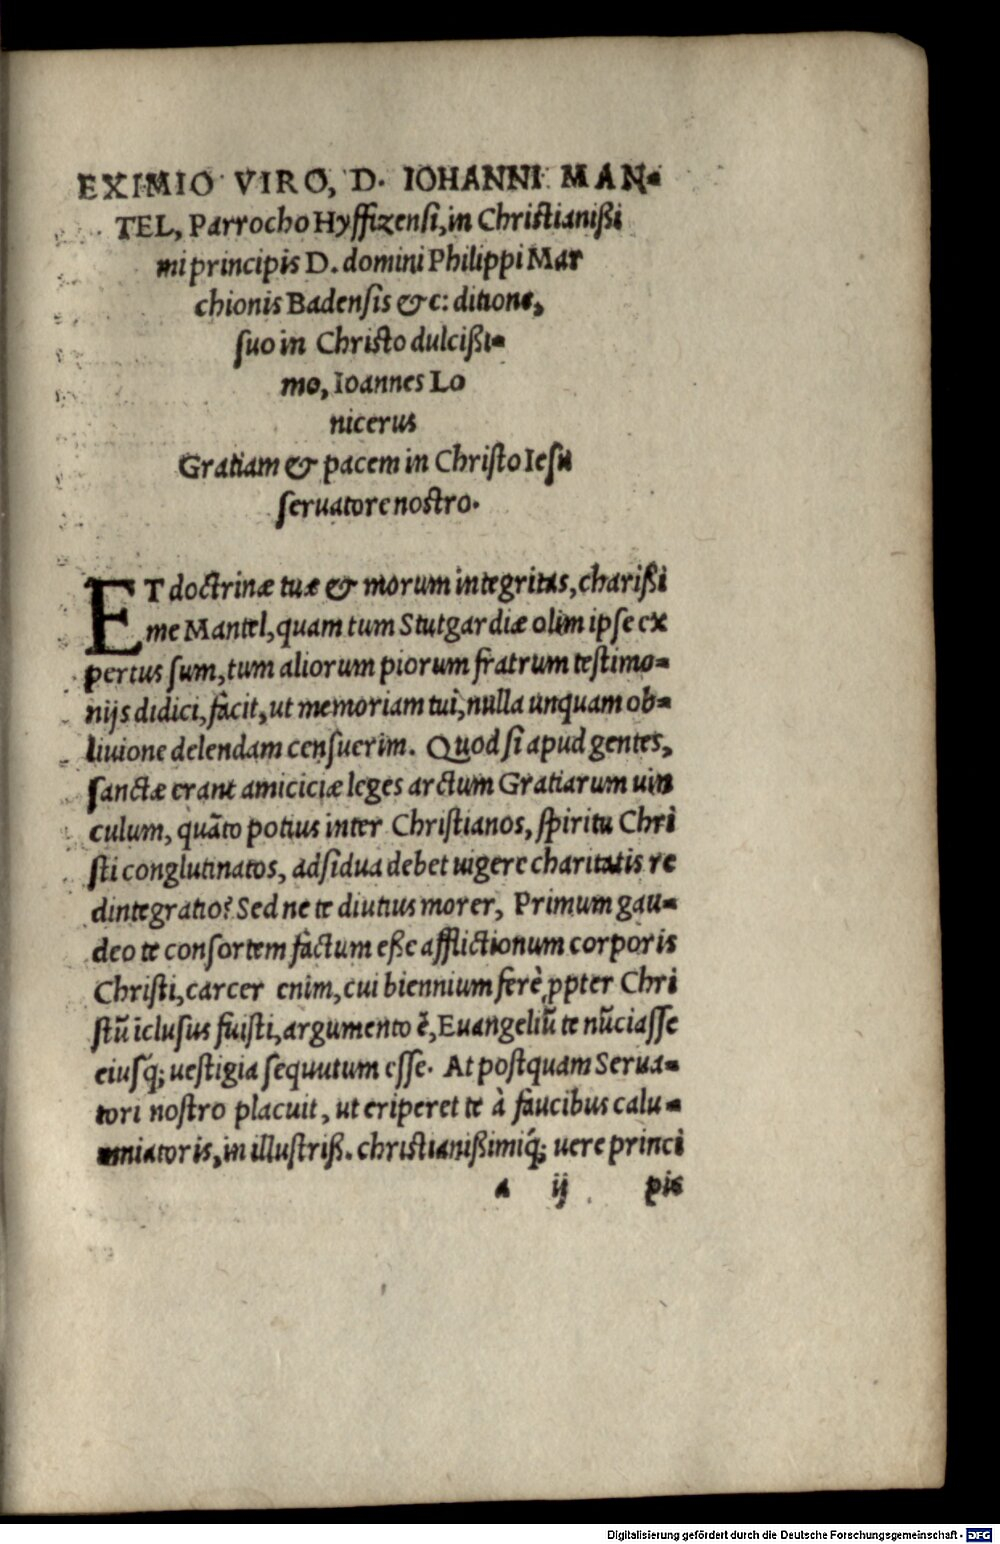 EXIMIO VIRO, D. IOHANNI MAN-
TEL, Parrocho Hyffizensi, in Christianißi
mi principis D. domini Philippi Mar
chionis Badensis & c: ditione,
suo in Christo dulcißi-
mo, Ioannes Lo
nicerus
Gratiam & pacem in Christo Iesu
seruatore nostro.
ET doctrinæ tuæ & morum integritas, charißi
me Mantel, quam tum Stutgardiæ olim ipse ex
pertus sum, tum aliorum piorum fratrum testimo-
nijs didici, facit, ut memoriam tui, nulla unquam ob-
liuione delendam censuerim. Quod si apud gentes,
sanctæ erant amiciciæ leges arctum Gratiarum uin
culum, quãto potius inter Christianos, spiritu Chri
sti conglutinatos, adsidua debet uigere charitatis re
dintegratio? Sed ne te diutius morer, Primum gau-
deo te consortem factum eße afflictionum corporis
Christi, carcer enim, cui biennium ferè ꝓpter Chri
stũ ĩclusus fuisti, argumento ẽ, Euangeliũ te nũciasse
eiusq́; uestigia sequutum esse. At postquam Serua-
tori nostro placuit, ut eriperet te à faucibus calu-
mniatoris, in illustriß. christianißimiq́; uere princi
a ij
pis
Digitalisierung gefördert durch die Deutsche Forschungsgemeinschaft - DFG